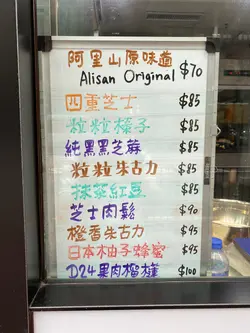 阿里山原味道
Alisan Original $70
四重芝士 $85
粒粒榛子 $85
純黑黑芝麻 $85
粒粒朱古力 $85
抹茶紅豆 $85
芝士肉鬆 $90
橙香朱古力 $95
日本柚子蜂蜜 $95
D24果肉榴槤 $100